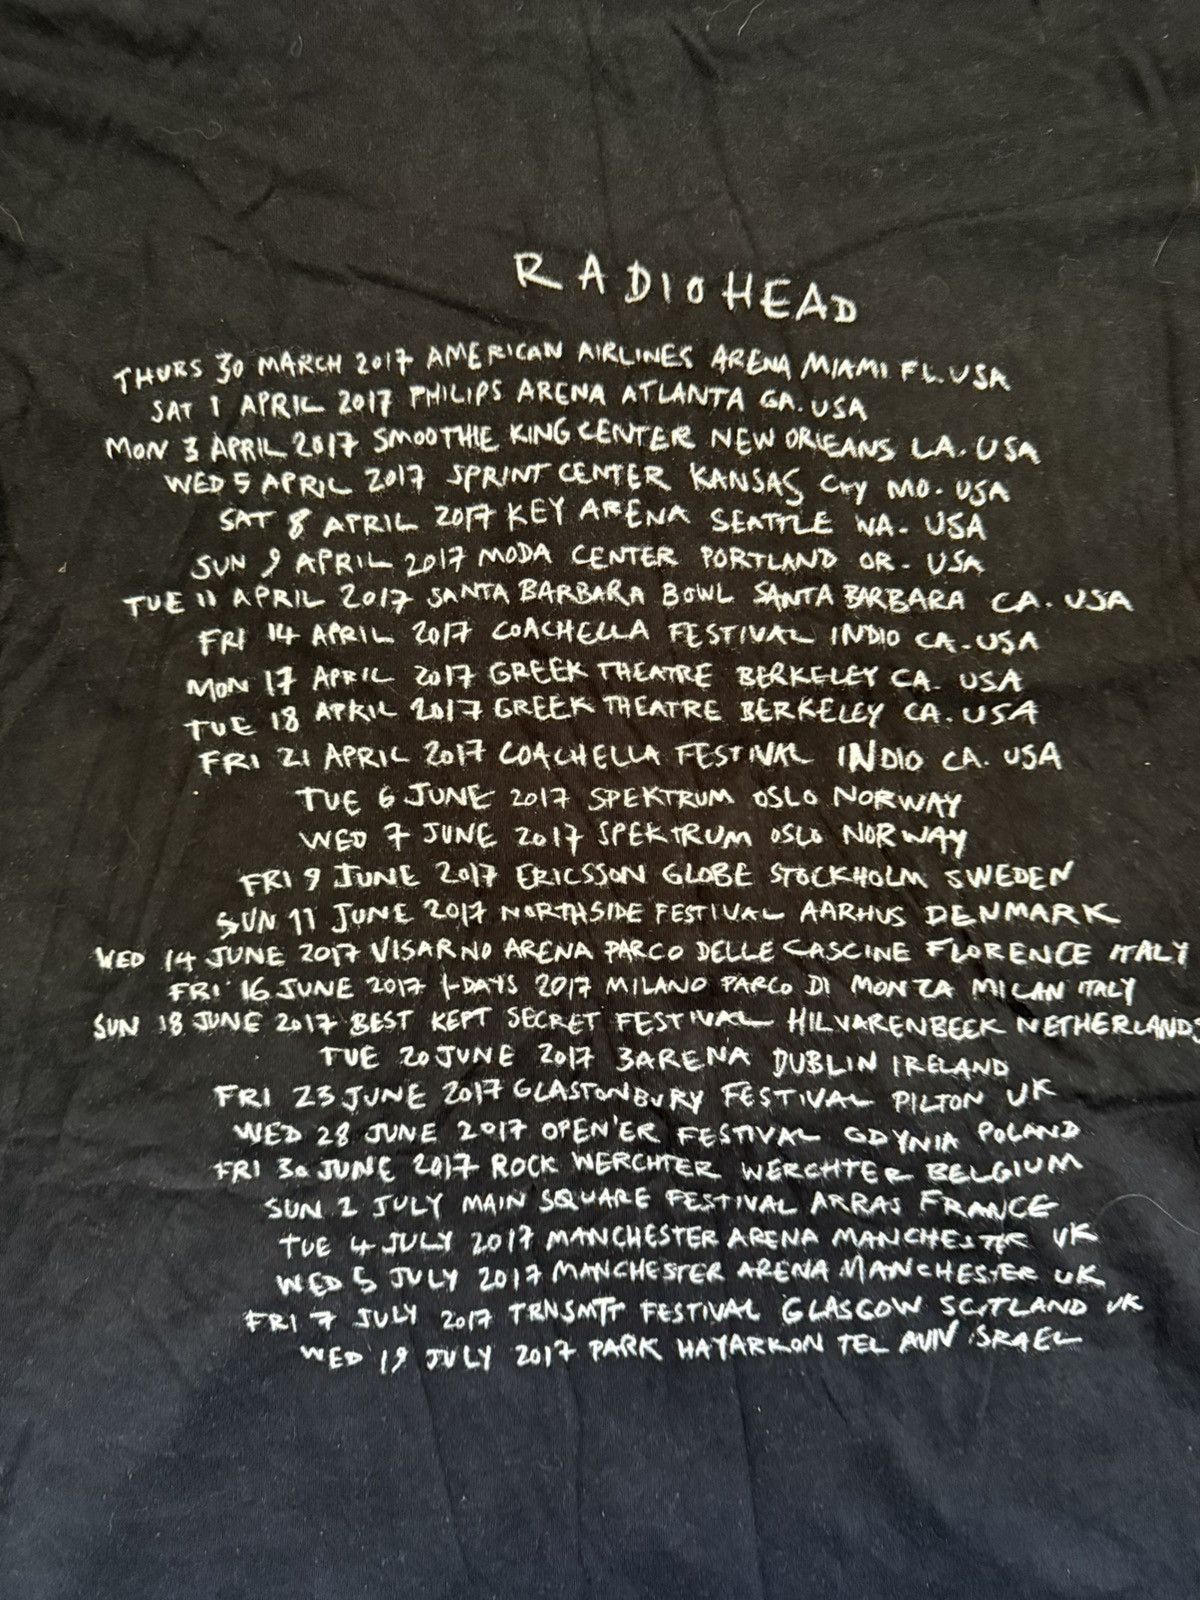 RADIOHEAD
THURS 30 MARCH 2017 AMERICAN AIRLINES ARENA MIAMI FL. USA
SAT 1 APRIL 2017 PHILIPS ARENA ATLANTA GA. USA
MON 3 APRIL 2017 SMOOTHIE KING CENTER NEW ORLEANS LA. USA
WED 5 APRIL 2017 SPRINT CENTER KANSAS CITY MO. USA
SAT 8 APRIL 2017 KEY ARENA SEATTLE WA. USA
SUN 9 APRIL 2017 MODA CENTER PORTLAND OR. USA
TUE 11 APRIL 2017 SANTA BARBARA BOWL SANTA BARBARA CA. USA
FRI 14 APRIL 2017 COACHELLA FESTIVAL INDIO CA. USA
MON 17 APRIL 2017 GREEK THEATRE BERKELEY CA. USA
TUE 18 APRIL 2017 GREEK THEATRE BERKELEY CA. USA
FRI 21 APRIL 2017 COACHELLA FESTIVAL INDIO CA. USA
TUE 6 JUNE 2017 SPEKTRUM OSLO NORWAY
WED 7 JUNE 2017 SPEKTRUM OSLO NORWAY
FRI 9 JUNE 2017 ERICSSON GLOBE STOCKHOLM SWEDEN
SUN 11 JUNE 2017 NORTHSIDE FESTIVAL AARHUS DENMARK
WED 14 JUNE 2017 VISARNO ARENA PARCO DELLE CASCINE FLORENCE ITALY
FRI 16 JUNE 2017 I-DAYS 2017 MILANO PARCO DI MONZA MILAN ITALY
SUN 18 JUNE 2017 BEST KEPT SECRET FESTIVAL HILVARENBEEK NETHERLANDS
TUE 20 JUNE 2017 3ARENA DUBLIN IRELAND
FRI 23 JUNE 2017 GLASTONBURY FESTIVAL PILTON UK
WED 28 JUNE 2017 OPEN'ER FESTIVAL GDYNIA POLAND
FRI 30 JUNE 2017 ROCK WERCHTER WERCHTER BELGIUM
SUN 2 JULY MAIN SQUARE FESTIVAL ARRAS FRANCE
TUE 4 JULY 2017 MANCHESTER ARENA MANCHESTER UK
WED 5 JULY 2017 MANCHESTER ARENA MANCHESTER UK
FRI 7 JULY 2017 TRNSMTT FESTIVAL GLASGOW SCOTLAND UK
WED 19 JULY 2017 PARK HAYARKON TEL AVIV ISRAEL